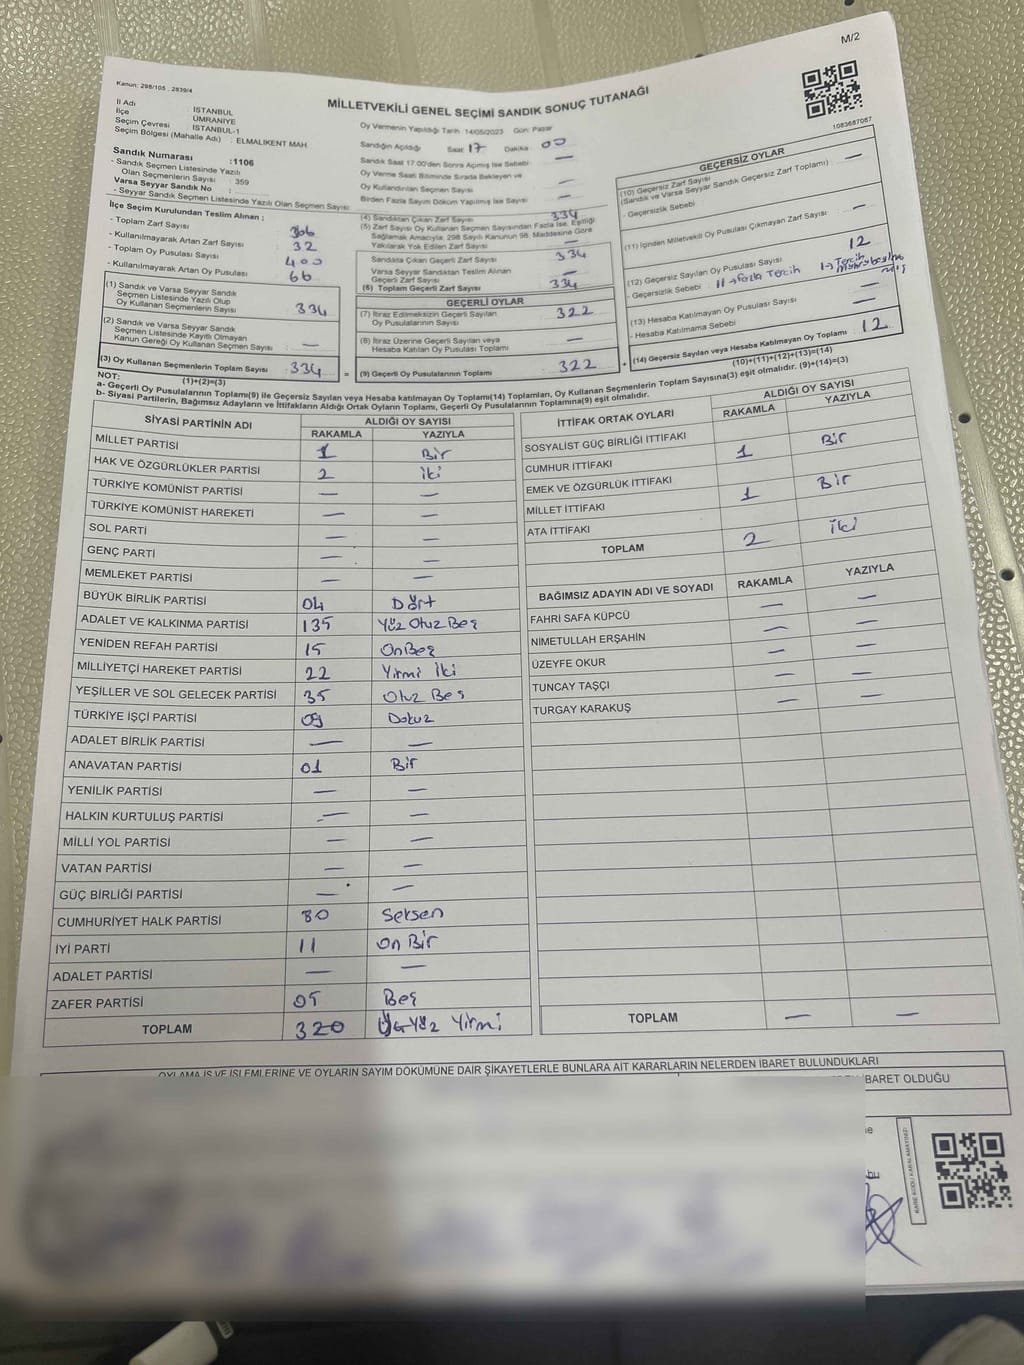 M/2
Kanun: 298/105 : 2839/4
MİLLETVEKİLİ GENEL SEÇİMİ SANDIK SONUÇ TUTANAĞI
1083687087
İl Adı : İSTANBUL
İlçe : ÜMRANİYE
Seçim Çevresi : İSTANBUL-1
Seçim Bölgesi (Mahalle Adı) : ELMALIKENT MAH.
Sandık Numarası :1106
- Sandık Seçmen Listesinde Yazılı
Olan Seçmenlerin Sayısı : 359
Varsa Seyyar Sandık No :
- Seyyar Sandık Seçmen Listesinde Yazılı Olan Seçmen Sayısı:
İlçe Seçim Kurulundan Teslim Alınan ;
- Toplam Zarf Sayısı
- Kullanılmayarak Artan Zarf Sayısı 32
- Toplam Oy Pusulası Sayısı 400
- Kullanılmayarak Artan Oy Pusulası 66
(1) Sandık ve Varsa Seyyar Sandık
Seçmen Listesinde Yazılı Olup
Oy Kullanan Seçmenlerin Sayısı 334
(2) Sandık ve Varsa Seyyar Sandık
Seçmen Listesinde Kayıtlı Olmayan
Kanun Gereği Oy Kullanan Seçmen Sayısı —
(3) Oy Kullanan Seçmenlerin Toplam Sayısı 334 =
(1)+(2)=(3)
Oy Vermenin Yapıldığı Tarih: 14/05/2023 Gün: Pazar
Sandığın Açıldığı Saat 17 Dakika 00
Sandık Saat 17:00'den Sonra Açılmış İse Sebebi —
Oy Verme Saati Bitiminde Sırada Bekleyen ve
Oy Kullandırılan Seçmen Sayısı —
Birden Fazla Sayım Döküm Yapılmış İse Sayısı —
(4) Sandıktan Çıkan Zarf Sayısı 334
(5) Zarf Sayısı Oy Kullanan Seçmen Sayısından Fazla İse, Eşitliği
Sağlamak Amacıyla; 298 Sayılı Kanunun 98. Maddesine Göre
Yakılarak Yok Edilen Zarf Sayısı —
Sandıkta Çıkan Geçerli Zarf Sayısı 334
Varsa Seyyar Sandıktan Teslim Alınan
Geçerli Zarf Sayısı —
(6) Toplam Geçerli Zarf Sayısı 334
GEÇERLİ OYLAR
(7) İtiraz Edilmeksizin Geçerli Sayılan
Oy Pusulalarının Sayısı 322
(8) İtiraz Üzerine Geçerli Sayılan veya
Hesaba Katılan Oy Pusulası Toplamı —
(9) Geçerli Oy Pusulalarının Toplamı 322 +
GEÇERSİZ OYLAR
(10) Geçersiz Zarf Sayısı
(Sandık ve Varsa Seyyar Sandık Geçersiz Zarf Toplamı) —
- Geçersizlik Sebebi
(11) İçinden Milletvekili Oy Pusulası Çıkmayan Zarf Sayısı —
(12) Geçersiz Sayılan Oy Pusulası Sayısı 12
- Geçersizlik Sebebi : 11 → fazla Tercih 1→Tercih
(13) Hesaba Katılmayan Oy Pusulası Sayısı —
- Hesaba Katılmama Sebebi —
(14) Geçersiz Sayılan veya Hesaba Katılmayan Oy Toplamı 12
(10)+(11)+(12)+(13)=(14)
NOT:
a- Geçerli Oy Pusulalarının Toplamı(9) ile Geçersiz Sayılan veya Hesaba katılmayan Oy Toplamı(14) Toplamları, Oy Kullanan Seçmenlerin Toplam Sayısına(3) eşit olmalıdır. (9)+(14)=(3)
b- Siyasi Partilerin, Bağımsız Adayların ve İttifakların Aldığı Ortak Oyların Toplamı, Geçerli Oy Pusulalarının Toplamına(9) eşit olmalıdır.
SİYASİ PARTİNİN ADI ALDIĞI OY SAYISI
RAKAMLA YAZIYLA
MİLLET PARTİSİ 1 Bir
HAK VE ÖZGÜRLÜKLER PARTİSİ 2 iki
TÜRKİYE KOMÜNİST PARTİSİ — —
TÜRKİYE KOMÜNİST HAREKETİ — —
SOL PARTİ — —
GENÇ PARTİ — —
MEMLEKET PARTİSİ — —
BÜYÜK BİRLİK PARTİSİ 04 Dört
ADALET VE KALKINMA PARTİSİ 135 Yüz Otuz Beş
YENİDEN REFAH PARTİSİ 15 On Beş
MİLLİYETÇİ HAREKET PARTİSİ 22 Yirmi İki
YEŞİLLER VE SOL GELECEK PARTİSİ 35 Otuz Beş
TÜRKİYE İŞÇİ PARTİSİ 09 Dokuz
ADALET BİRLİK PARTİSİ — —
ANAVATAN PARTİSİ 01 Bir
YENİLİK PARTİSİ — —
HALKIN KURTULUŞ PARTİSİ — —
MİLLİ YOL PARTİSİ — —
VATAN PARTİSİ — —
GÜÇ BİRLİĞİ PARTİSİ — —
CUMHURİYET HALK PARTİSİ 80 Seksen
İYİ PARTİ 11 On Bir
ADALET PARTİSİ — —
ZAFER PARTİSİ 05 Beş
TOPLAM 320 Üç Yüz Yirmi
İTTİFAK ORTAK OYLARI ALDIĞI OY SAYISI
RAKAMLA YAZIYLA
SOSYALİST GÜÇ BİRLİĞİ İTTİFAKI
CUMHUR İTTİFAKI 1 Bir
EMEK VE ÖZGÜRLÜK İTTİFAKI
MİLLET İTTİFAKI 1 Bir
ATA İTTİFAKI
TOPLAM 2 iki
BAĞIMSIZ ADAYIN ADI VE SOYADI RAKAMLA YAZIYLA
FAHRİ SAFA KÜPCÜ — —
NİMETULLAH ERŞAHİN — —
ÜZEYFE OKUR — —
TUNCAY TAŞÇI — —
TURGAY KARAKUŞ — —
TOPLAM — —
OYLAMA İŞ VE İŞLEMLERİNE VE OYLARIN SAYIM DÖKÜMÜNE DAİR ŞİKAYETLERLE BUNLARA AİT KARARLARIN NELERDEN İBARET BULUNDUKLARI
İBARET OLDUĞU
KARE KODU KARALAMAYINIZ!